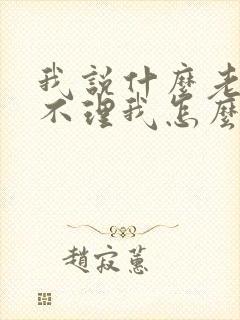 我說什麼老
不理我怎麼
趙寂蕙